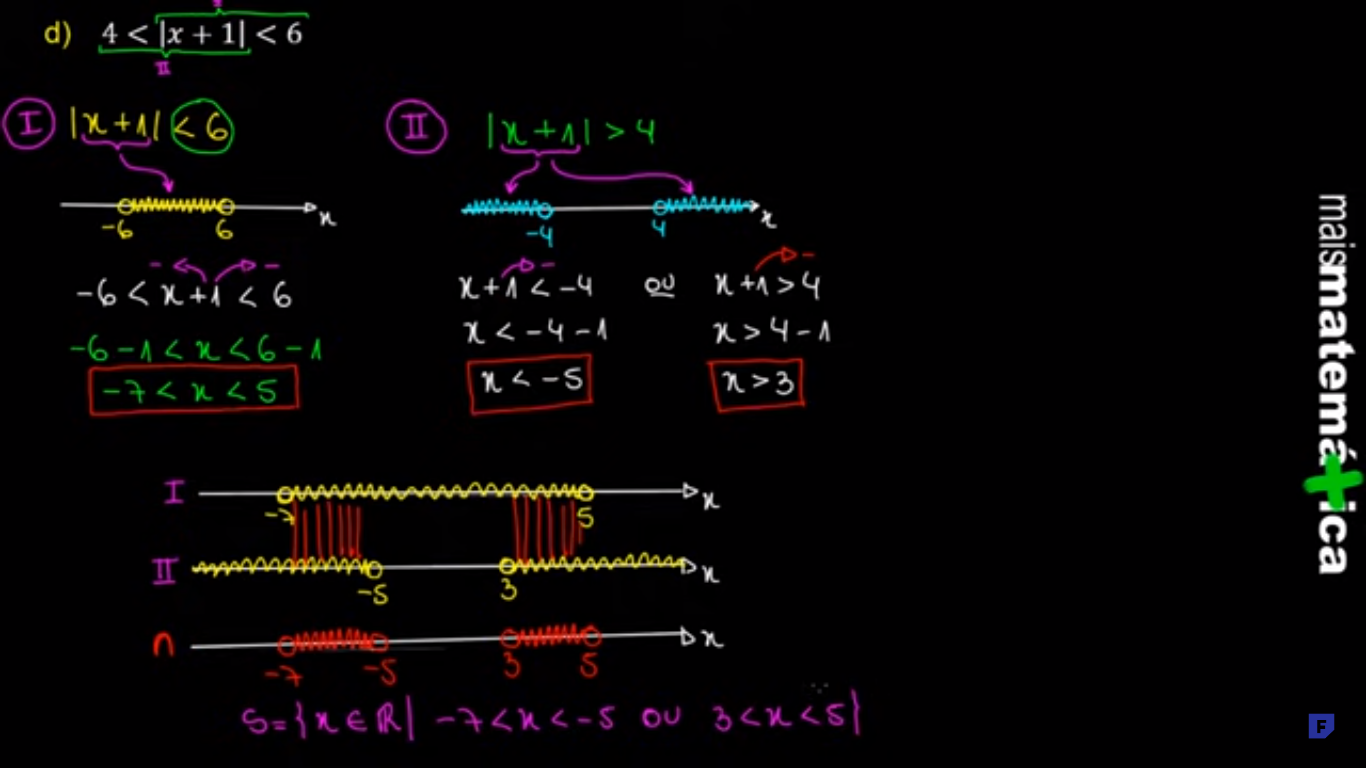 d) 4 < |x + 1| < 6
II
I |x+1| < 6
II |x+1| > 4
-6 6 x
-4 4 x
- -
-6 < x+1 < 6
-6-1 < x < 6-1
-7 < x < 5
- -
x+1 < -4 ou x+1 > 4
x < -4-1 x > 4-1
x < -5 x > 3
I -7 5 x
II -5 3 x
∩ -7 -5 3 5 x
S={x ∈ ℝ| -7<x<-5 ou 3<x<5}
maismatemática
F